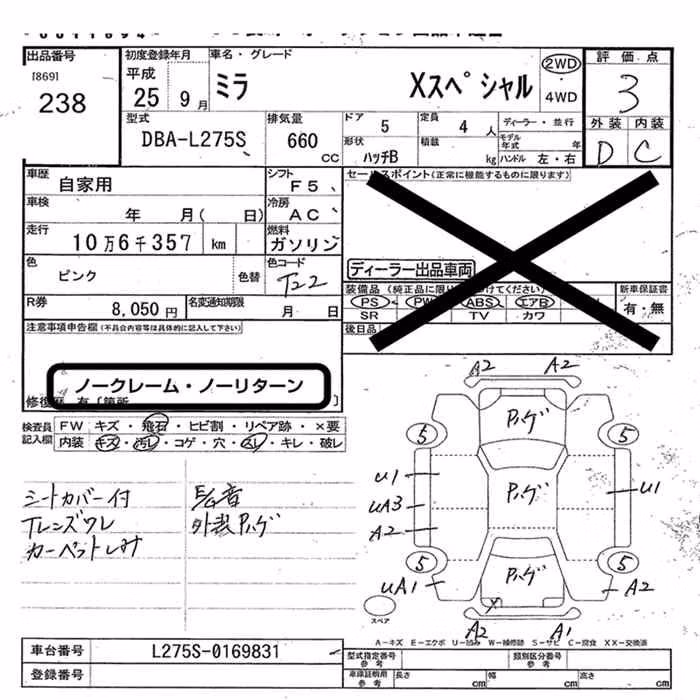 出品番号
[869]
238
初度登録年月
平成
25 9 月
車名・グレード
ミラ Xスペシャル
2WD
4WD
評価点
3
外装 内装
D C
型式
DBA-L275S
排気量
660
cc
ドア 5
定員 4 人
ディーラー・並行
形状
ハッチB
積載
kg
モデル年式 年
ハンドル 左・右
車歴
自家用
シフト
F5、
車検
年 月( 日)
冷房
AC、
走行
10万6千357 km
燃料
ガソリン
色
ピンク
色替
色コード
T22
R券
8,050 円
名変通知期限
月 日
セールスポイント(正常に機能するものに限ります)
ディーラー出品車両
装備品(純正品に限り
けてください)
PS PW ABS エアB
SR TV カワ
新車保証書
有・無
後日品
注意事項申告欄(不具合内容等は具体的に記入して下さい)
ノークレーム・ノーリターン
検査員記入欄
FW キズ・飛石・ヒビ割・リペア跡・×要
内装 キズ・汚レ・コゲ・穴・スレ・キレ・破レ
シートカバー付
Tレンズワレ
カーペットしみ
外装
A2 A2
5 5
U1
UA3
A2
U1
5 5
UA1
A2
A2 A1
スペア
A－キズ E－エクボ U－凹み W－補修跡 S－サビ C－腐食 XX－交換済
車台番号
L275S-0169831
登録番号
型式指定番号
参考
類別区分番号
参考
車庫証明用
参考
長さ cm
幅 cm
高さ cm